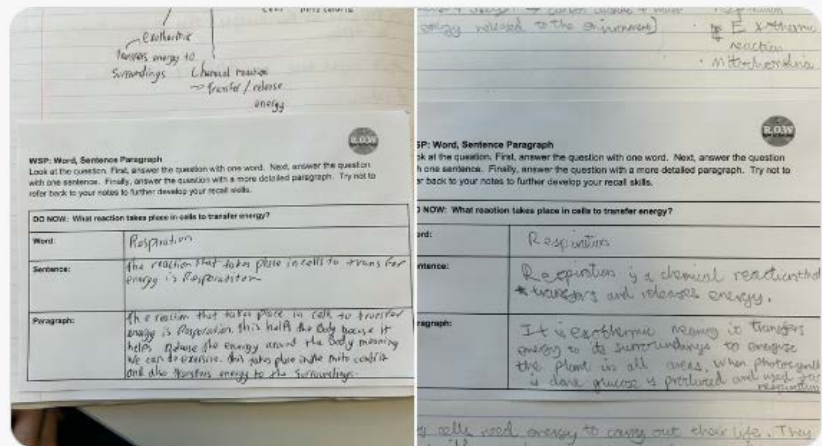 exothermic
Transfers energy to
surroundings Chemical reaction
→ Transfer/release
energy
R.O.W
WSP: Word, Sentence Paragraph
Look at the question. First, answer the question with one word. Next, answer the question
with one sentence. Finally, answer the question with a more detailed paragraph. Try not to
refer back to your notes to further develop your recall skills.
DO NOW: What reaction takes place in cells to transfer energy?
Word:
Respiration
Sentence:
the reaction that takes place in cells to transfer
energy is
Paragraph:
the reaction that takes place in cells to transfer
energy is Respiration. this helps the Body because it
helps the energy around the Body meaning
we can do exercise. this takes place in the
and also transfers energy to the surroundings.
energy released to the environment)
reaction
• Mitochondria
R.O.W
SP: Word, Sentence Paragraph
ok at the question. First, answer the question with one word. Next, answer the question
h one sentence. Finally, answer the question with a more detailed paragraph. Try not to
er back to your notes to further develop your recall skills.
NOW: What reaction takes place in cells to transfer energy?
ord:
Respiration
ntence:
Respiration is a chemical reaction that
transfers and releases energy.
ragraph:
It is exothermic meaning it transfers
energy to its surroundings to
the plant in all areas. When
is done glucose is produced and used for
respiration
cells need energy to carry out their life. They